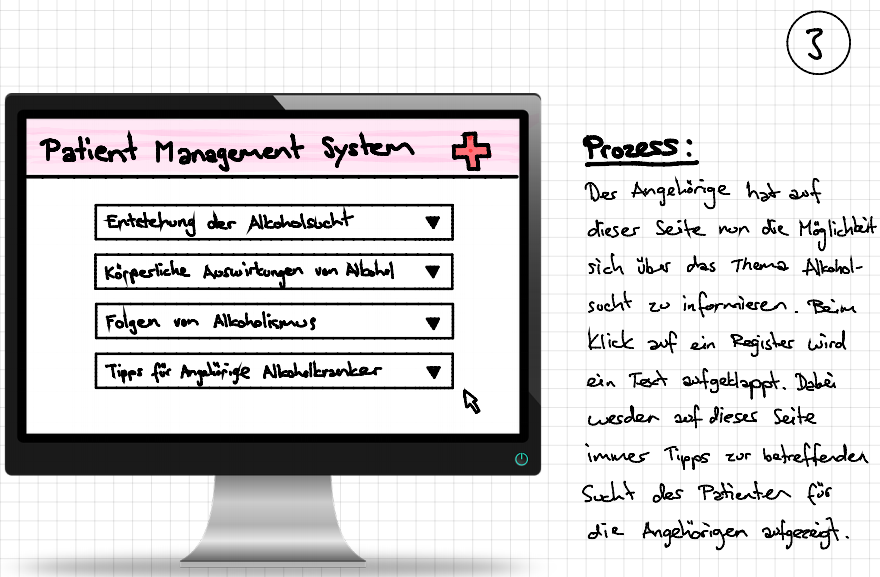 3
Patient Management System
Entstehung der Alkoholsucht
Körperliche Auswirkungen von Alkohol
Folgen von Alkoholismus
Tipps für Angehörige Alkoholkranker
Prozess:
Der Angehörige hat auf
dieser Seite nun die Möglichkeit
sich über das Thema Alkohol-
sucht zu informieren. Beim
Klick auf ein Register wird
ein Text aufgeklappt. Dabei
werden auf dieser Seite
immer Tipps zur betreffenden
Sucht des Patienten für
die Angehörigen aufgezeigt.